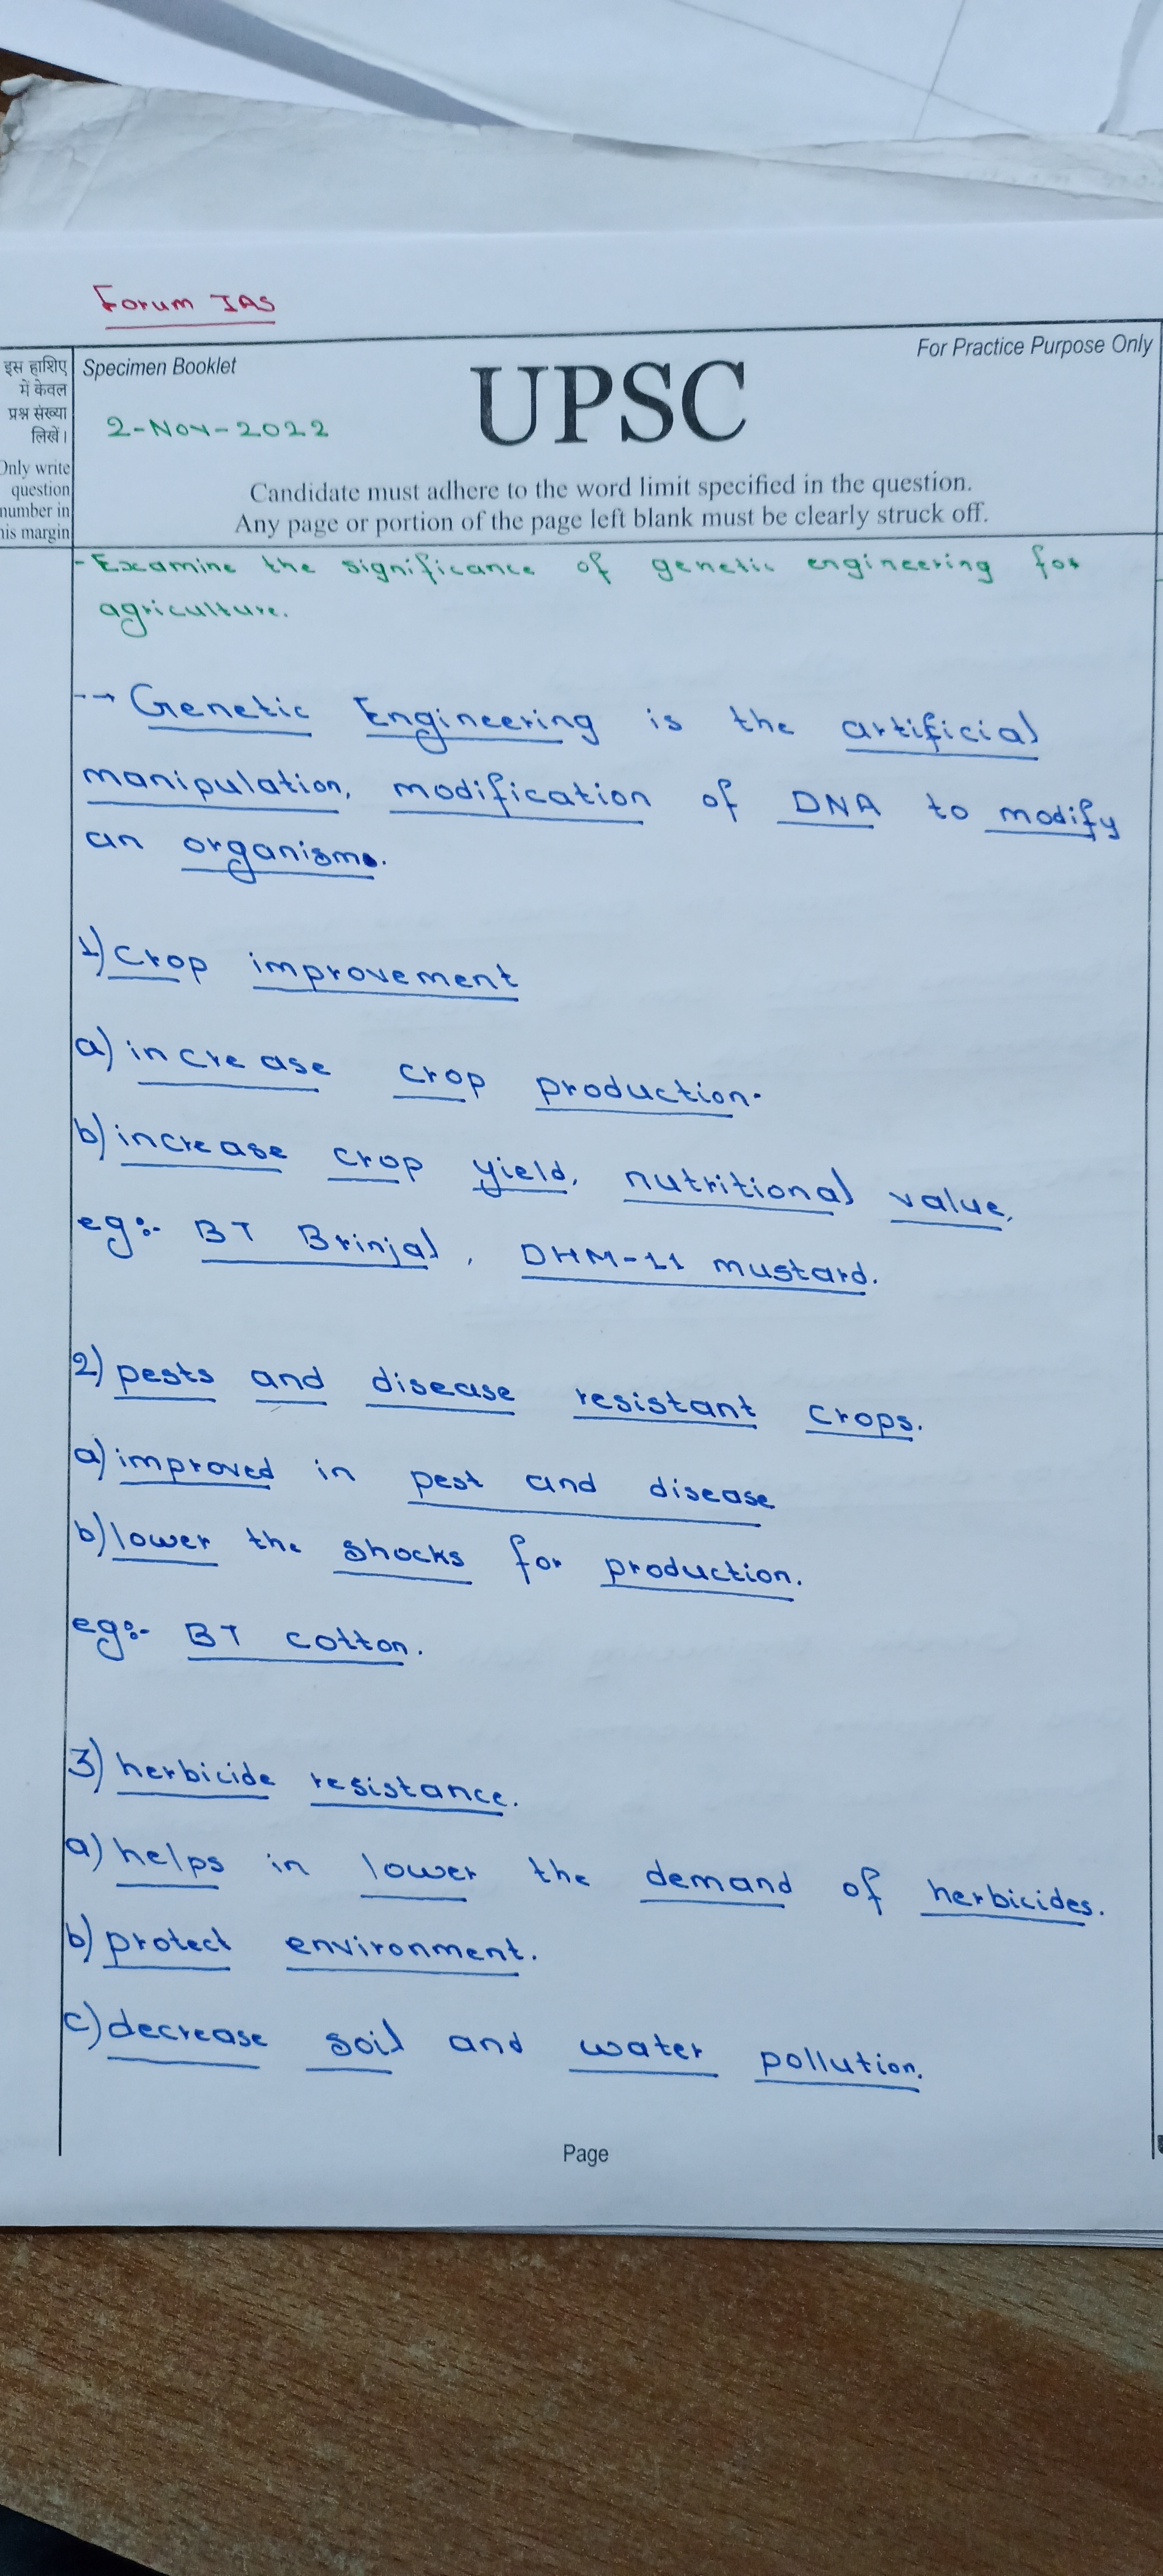 Forum IAS
इस हाशिए
में केवल
प्रश्न संख्या
लिखें।
Only write
question
number in
his margin
Specimen Booklet
For Practice Purpose Only
2-Nov-2022
UPSC
Candidate must adhere to the word limit specified in the question.
Any page or portion of the page left blank must be clearly struck off.
- Examine the significance of genetic engineering for
agriculture.
--→ Genetic Engineering is the artificial
manipulation, modification of DNA to modify
an organisms.
1) Crop improvement
a) increase crop production.
b) increase crop yield, nutritional value,
eg:- BT Brinjal, DHM-11 mustard.
2) pests and disease resistant crops.
a) improved in pest and disease
b) lower the shocks for production.
eg:- BT cotton.
3) herbicide resistance.
a) helps in lower the demand of herbicides.
b) protect environment.
c) decrease soil and water pollution.
Page